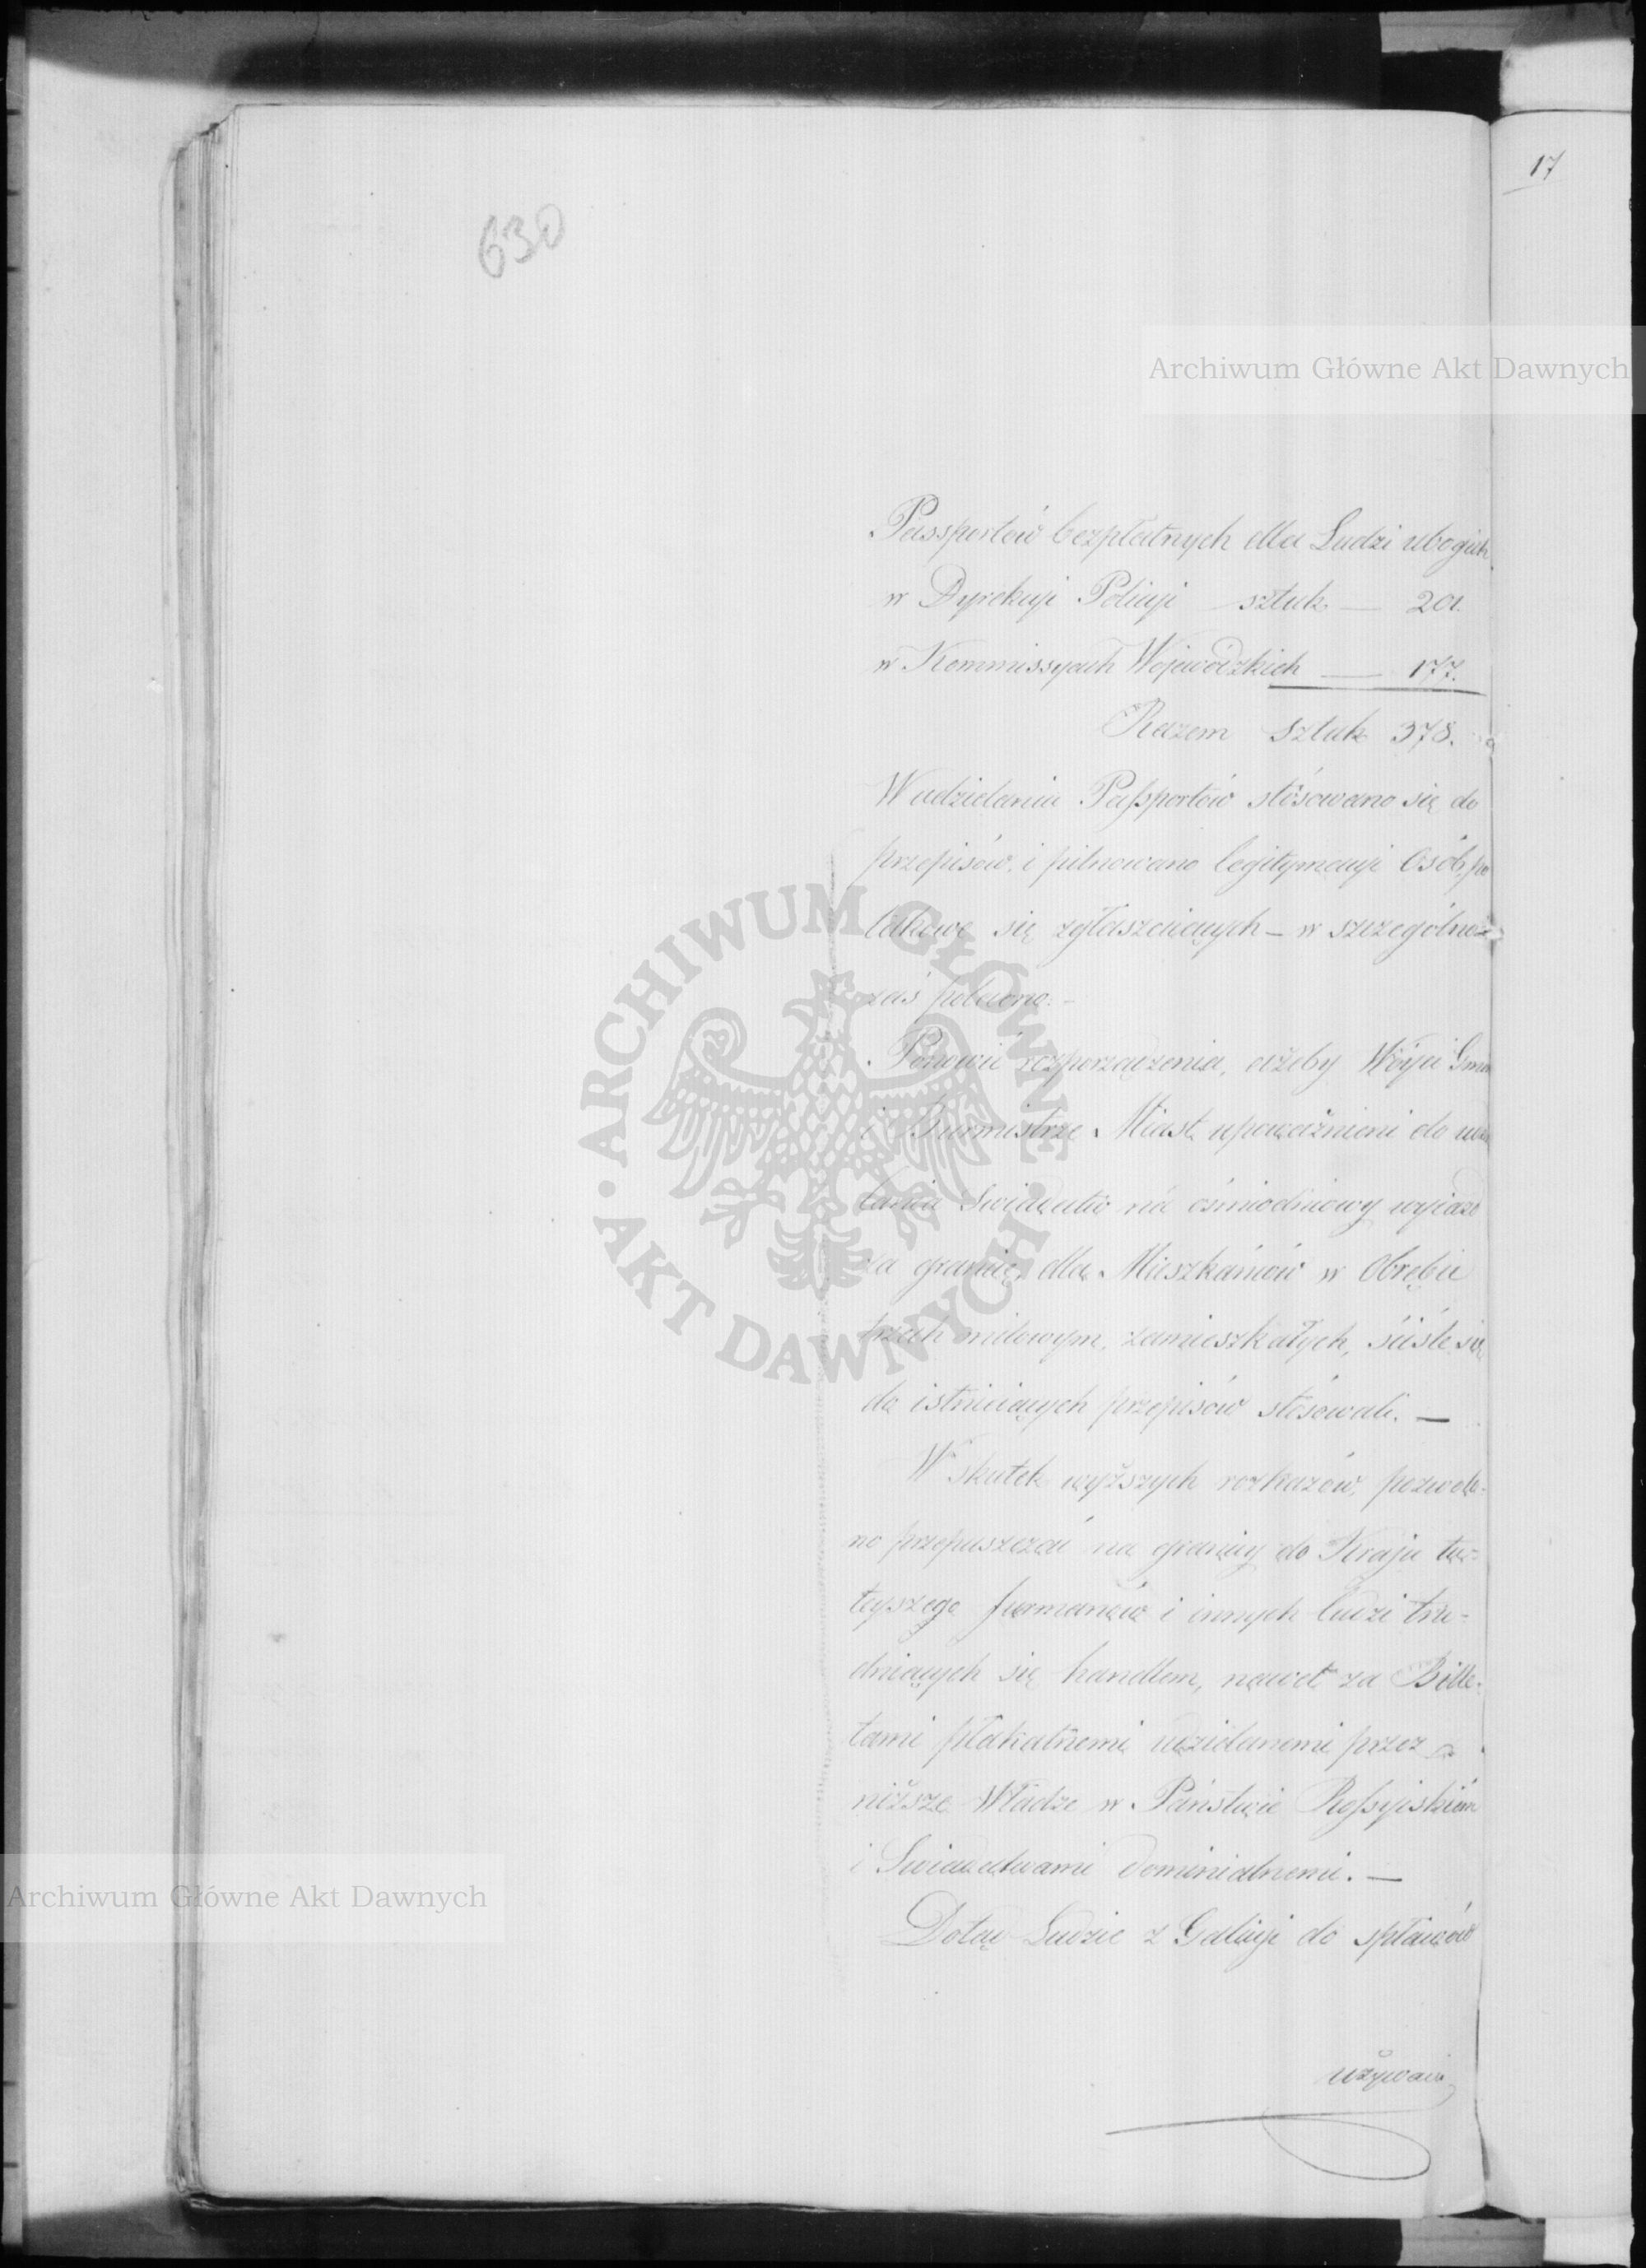 17
630
Archiwum Główne Akt Dawnych
Passportów bezpłatnych dla Ludzi ubogich
w Dyrekcyi Policyi sztuk — 201.
w Kommissyach Wojewódzkich — 177.
Razem sztuk 378.
W udzielaniu Paſsportów stósowano się do
przepisów, i pilnowano legitymacyi Osób, po
takowe się zgłaszaiących — w szczególnoś
zaś polecono: —
Ponowić rozporządzenia, ażeby Wóyci Gmin
i Burmistrze Miast, upoważnieni do udzie
lania Swiadectw na ośmiodniowy wyiazd
za granicę, dla Mieszkańców w Obrębie
trzech milowym, zamieszkałych, ściśle się
do istnieiących przepisów stósowali. —
W skutek wyższych rozkazów, pozwolo-
no przepuszczać na granicy do Kraju tu=
teyszego furmanów i innych ludzi tru=
dniących się handlem, nawet za Bille-
tami plakatnemi udzielanemi przez
niższe Władze w Państwie Roſsyiskiém
i Swiadectwami dominialnemi. —
Dotąd Ludzie z Galicyi do spławów
używani
ARCHIWUM GŁÓWNE · AKT DAWNYCH ·
Archiwum Główne Akt Dawnych